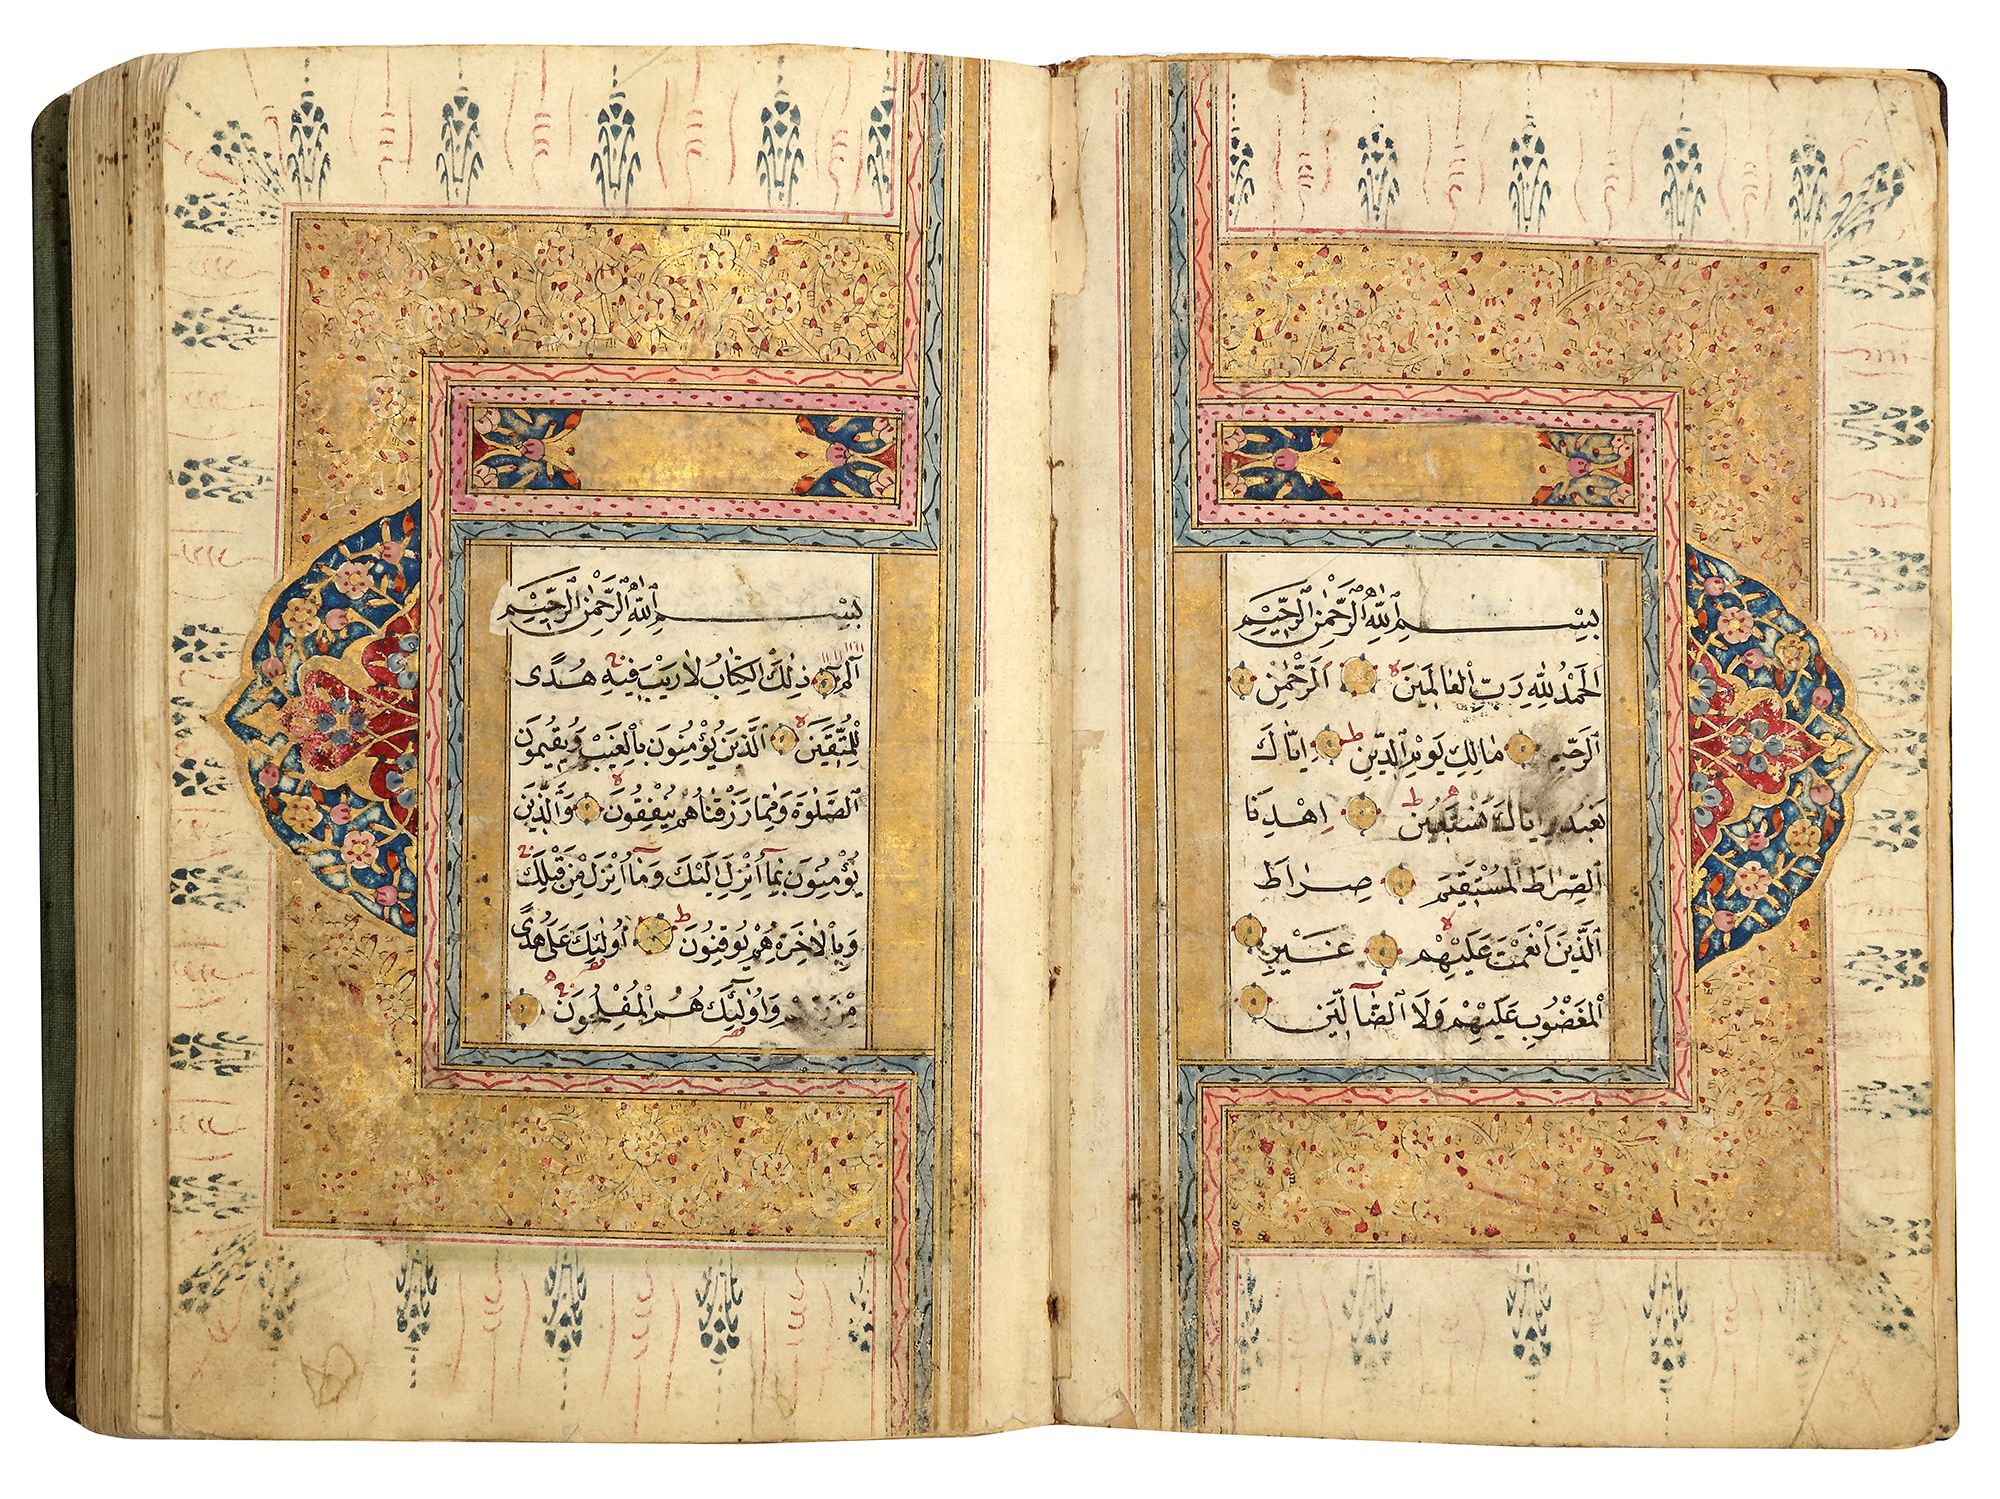 بِسْمِ ٱللَّهِ ٱلرَّحْمٰنِ ٱلرَّحِيمِ
الْحَمْدُ لِلَّهِ رَبِّ الْعَالَمِينَ الرَّحْمٰنِ
الرَّحِيمِ مَالِكِ يَوْمِ الدِّينِ اِيَّاكَ
نَعْبُدُ وَاِيَّاكَ نَسْتَعِينُ اِهْدِنَا
الصِّرَاطَ الْمُسْتَقِيمَ صِرَاطَ
الَّذِينَ اَنْعَمْتَ عَلَيْهِمْ غَيْرِ
الْمَغْضُوبِ عَلَيْهِمْ وَلَا الضَّآلِّينَ
بِسْمِ ٱللَّهِ ٱلرَّحْمٰنِ ٱلرَّحِيمِ
الٓمٓ ذٰلِكَ الْكِتَابُ لَا رَيْبَ فِيهِ هُدًى
لِلْمُتَّقِينَ الَّذِينَ يُؤْمِنُونَ بِالْغَيْبِ وَيُقِيمُونَ
الصَّلٰوةَ وَمِمَّا رَزَقْنَاهُمْ يُنْفِقُونَ وَالَّذِينَ
يُؤْمِنُونَ بِمَآ اُنْزِلَ اِلَيْكَ وَمَآ اُنْزِلَ مِنْ قَبْلِكَ
وَبِالْاٰخِرَةِ هُمْ يُوقِنُونَ اُولٰٓئِكَ عَلٰى هُدًى
مِنْ وَاُولٰٓئِكَ هُمُ الْمُفْلِحُونَ